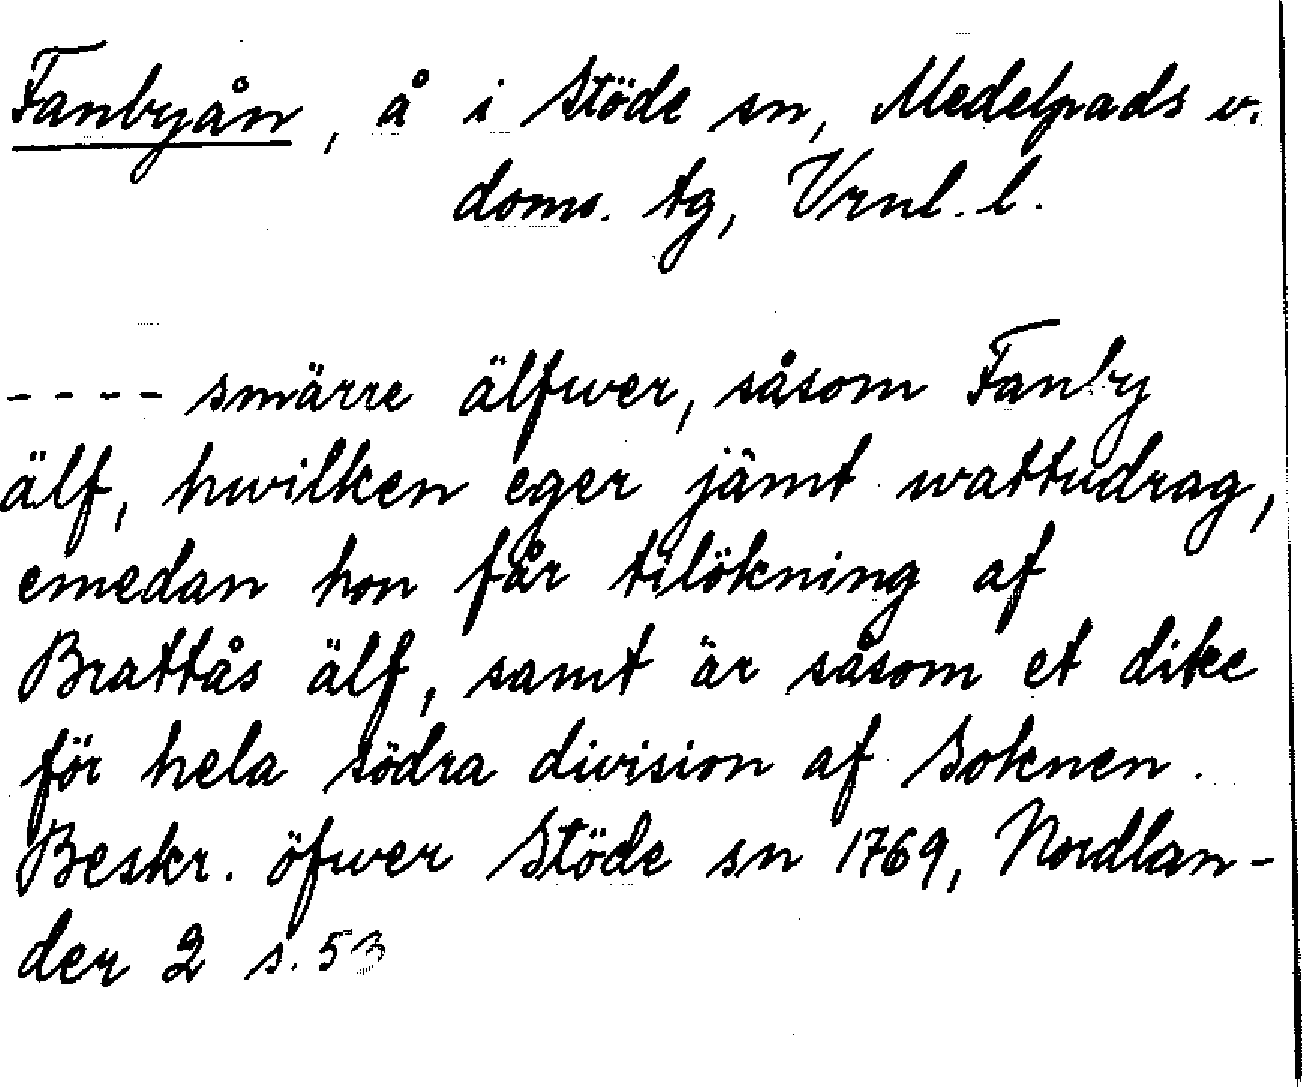 Fanbyån, å i Stöde sn, Medelpads v.
doms. tg, Vrnl. l.
---- smärre älfwer, såsom Fanby
älf, hwilken eger jämt wattudrag,
emedan hon får tilökning af
Brattås älf, samt är såsom et dike
för hela södra division af Soknen.
Beskr. öfwer Stöde sn 1769, Nordlan-
der 2 s. 53